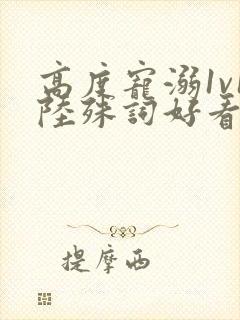 高度寵溺1v1
陸殊詞好看
提摩西